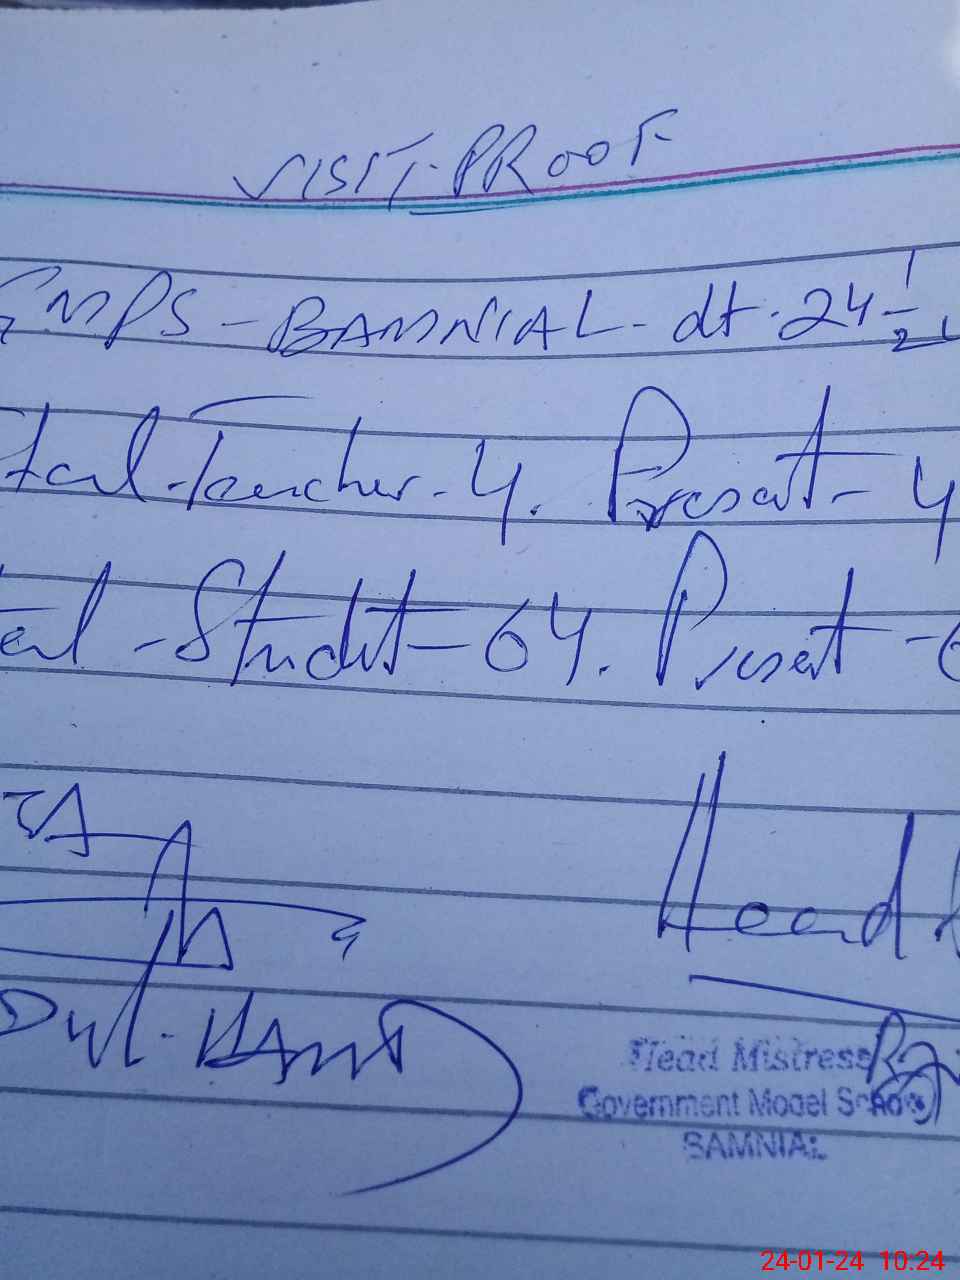 VISIT-PROOF
GMPS - BAMNIAL - dt. 24 1/2
tal-Teacher - 4. Present - 4
tal - Studet - 64. Present - 6
Head
Head Mistress
Government Model School
BAMNIAL
24-01-24 10:24